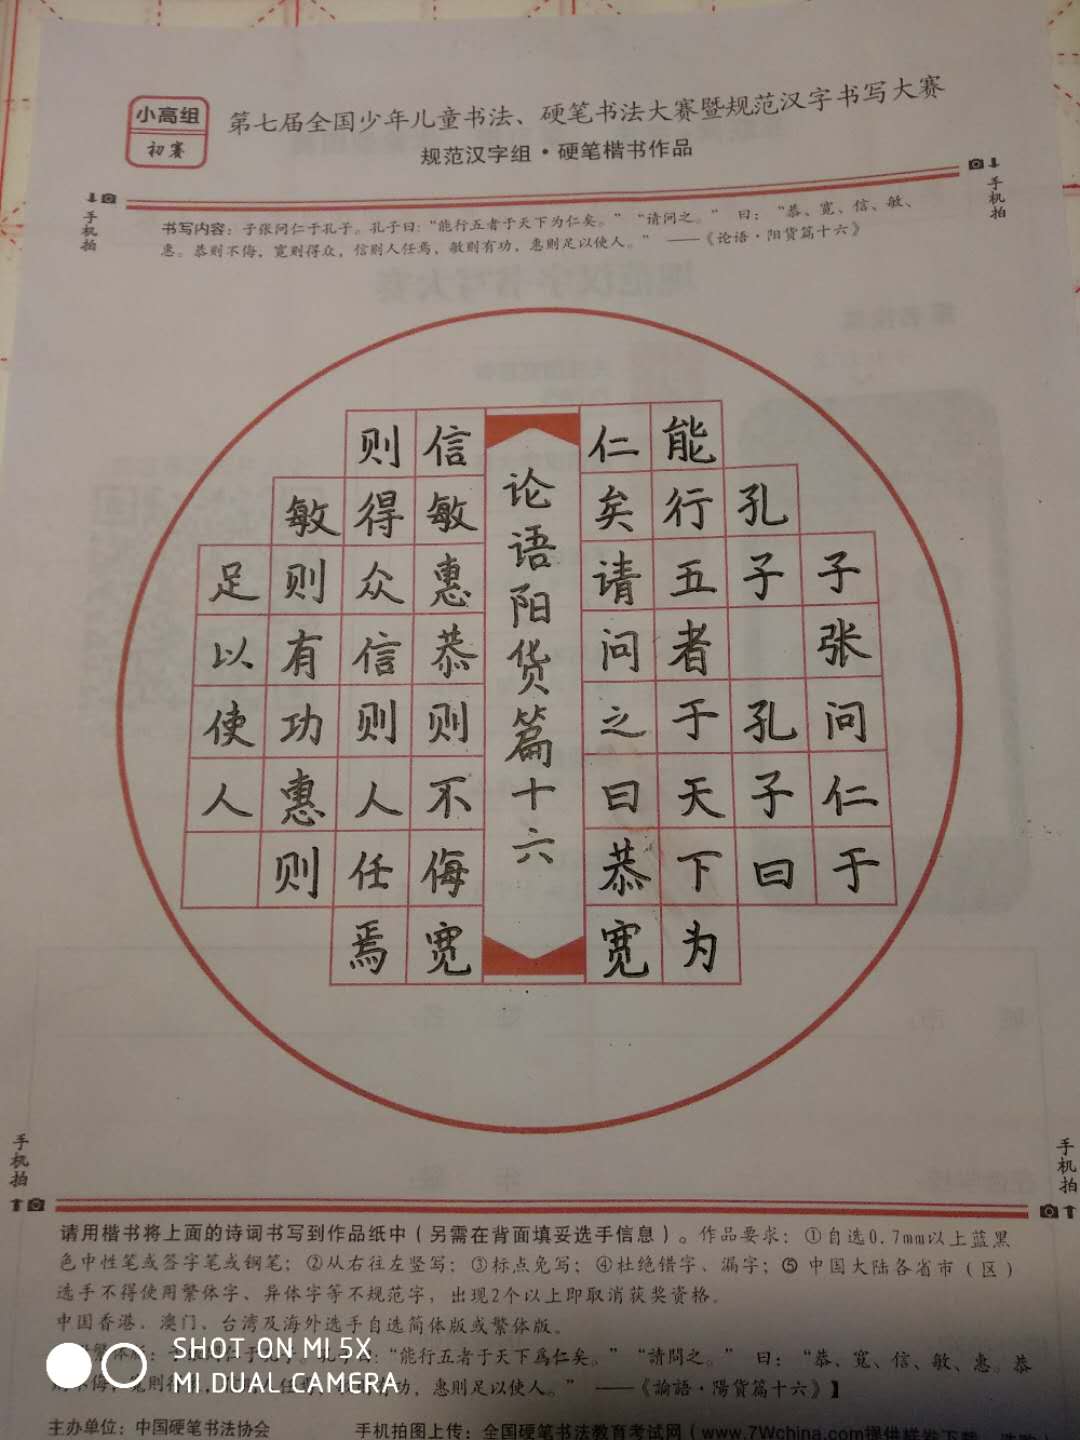 小高组
初赛
第七届全国少年儿童书法、硬笔书法大赛暨规范汉字书写大赛
规范汉字组·硬笔楷书作品
手机拍
手机拍
书写内容：子张问仁于孔子。孔子曰：“能行五者于天下为仁矣。”“请问之。” 曰： “恭、宽、信、敏、
惠。恭则不侮，宽则得众，信则人任焉，敏则有功，惠则足以使人。” ——《论语·阳货篇十六》
子张问仁于
孔子 孔子曰
能行五者于天下为
仁矣请问之曰恭宽
论语阳货篇十六
信敏惠恭则不侮宽
则得众信则人任焉
敏则有功惠则
足以使人
手机拍
手机拍
请用楷书将上面的诗词书写到作品纸中（另需在背面填妥选手信息）。作品要求：①自选0.7mm以上蓝黑
色中性笔或签字笔或钢笔；②从右往左竖写；③标点免写；④杜绝错字、漏字；⑤中国大陆各省市（区）
选手不得使用繁体字、异体字等不规范字，出现2个以上即取消获奖资格。
中国香港、澳门、台湾及海外选手自选简体版或繁体版。
“能行五者于天下爲仁矣。”“請問之。” 曰： “恭、寬、信、敏、惠。恭
功，惠則足以使人。” ——《論語·陽貨篇十六》】
SHOT ON MI 5X
MI DUAL CAMERA
主办单位：中国硬笔书法协会
手机拍图上传：全国硬笔书法教育考试网（www.7Wchina.com提供样卷下载